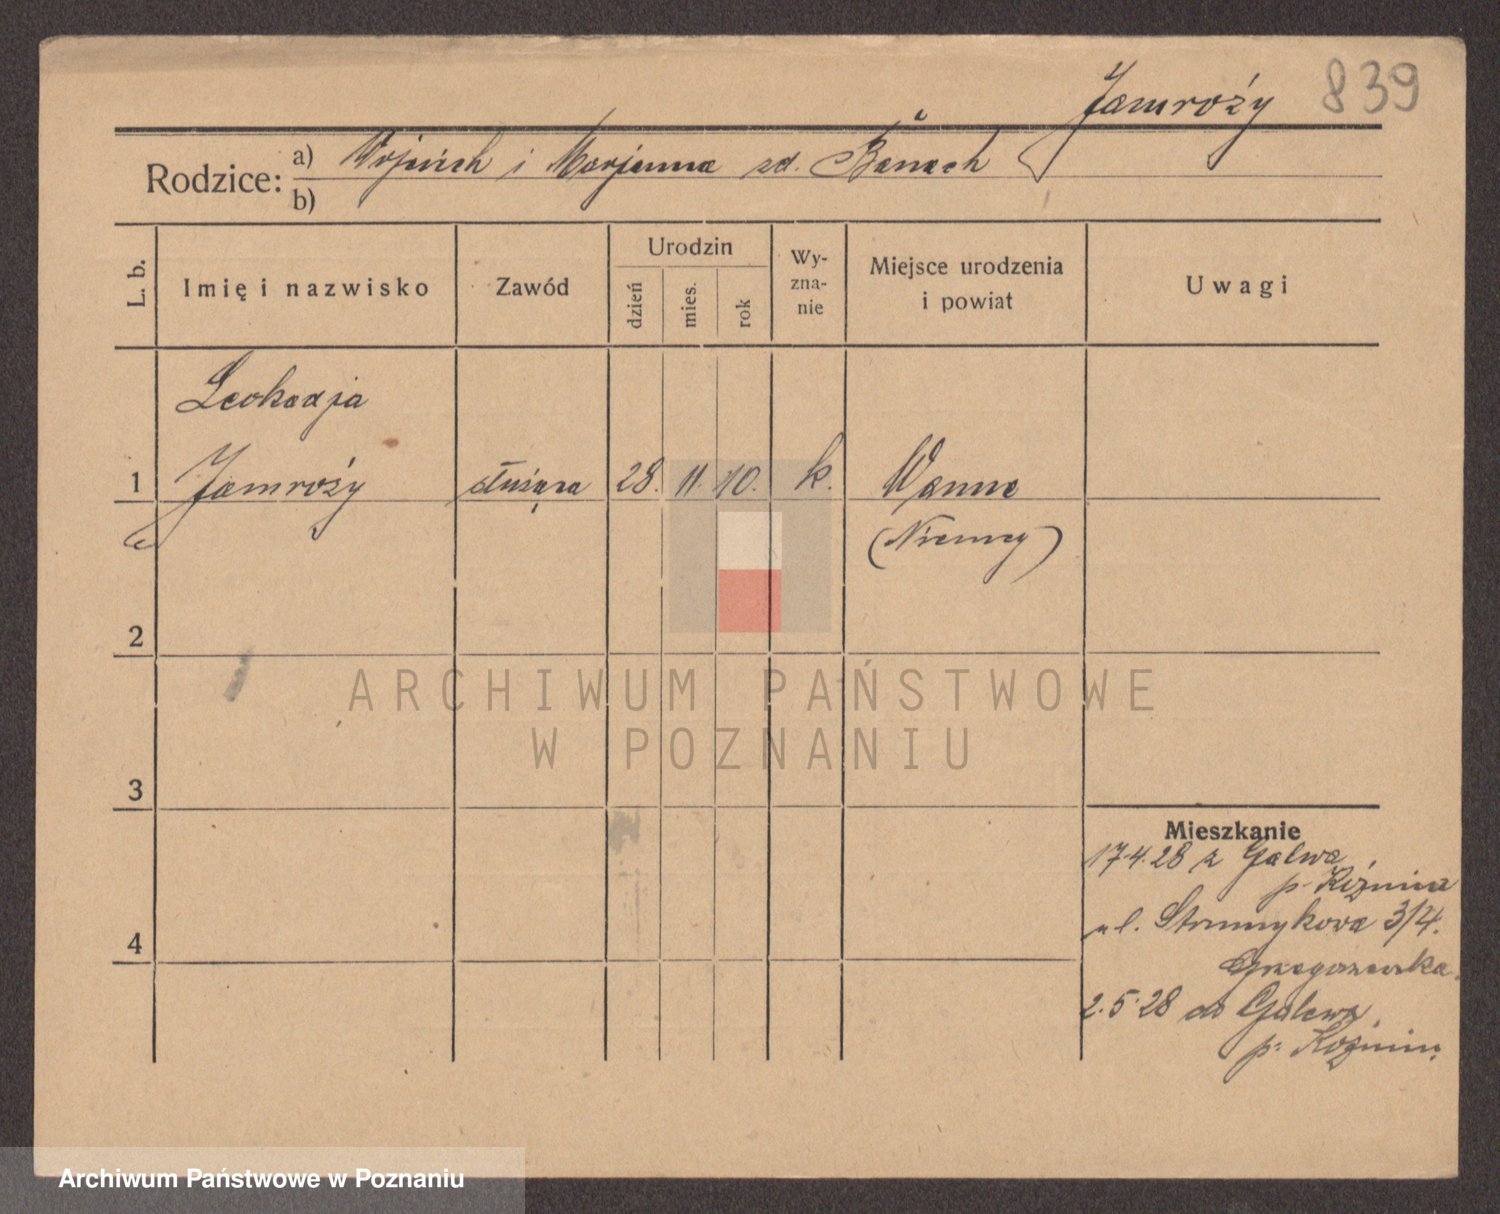 839
Jamroży
Rodzice: a) Wojciech i Marjanna zd. Banach
b)
L. b.
Imię i nazwisko
Zawód
Urodzin
dzień
mies.
rok
Wy-
zna-
nie
Miejsce urodzenia
i powiat
Uwagi
Leokadja
1 Jamroży służąca 28. 11. 10. k. Wanne
(Niemcy)
2
3
4
Mieszkanie
17.4.28 z Galwa
p. Koźmin
ul. 3/4.
2.5.28 do Galewa
p. Koźmin
ARCHIWUM PAŃSTWOWE
W POZNANIU
Archiwum Państwowe w Poznaniu